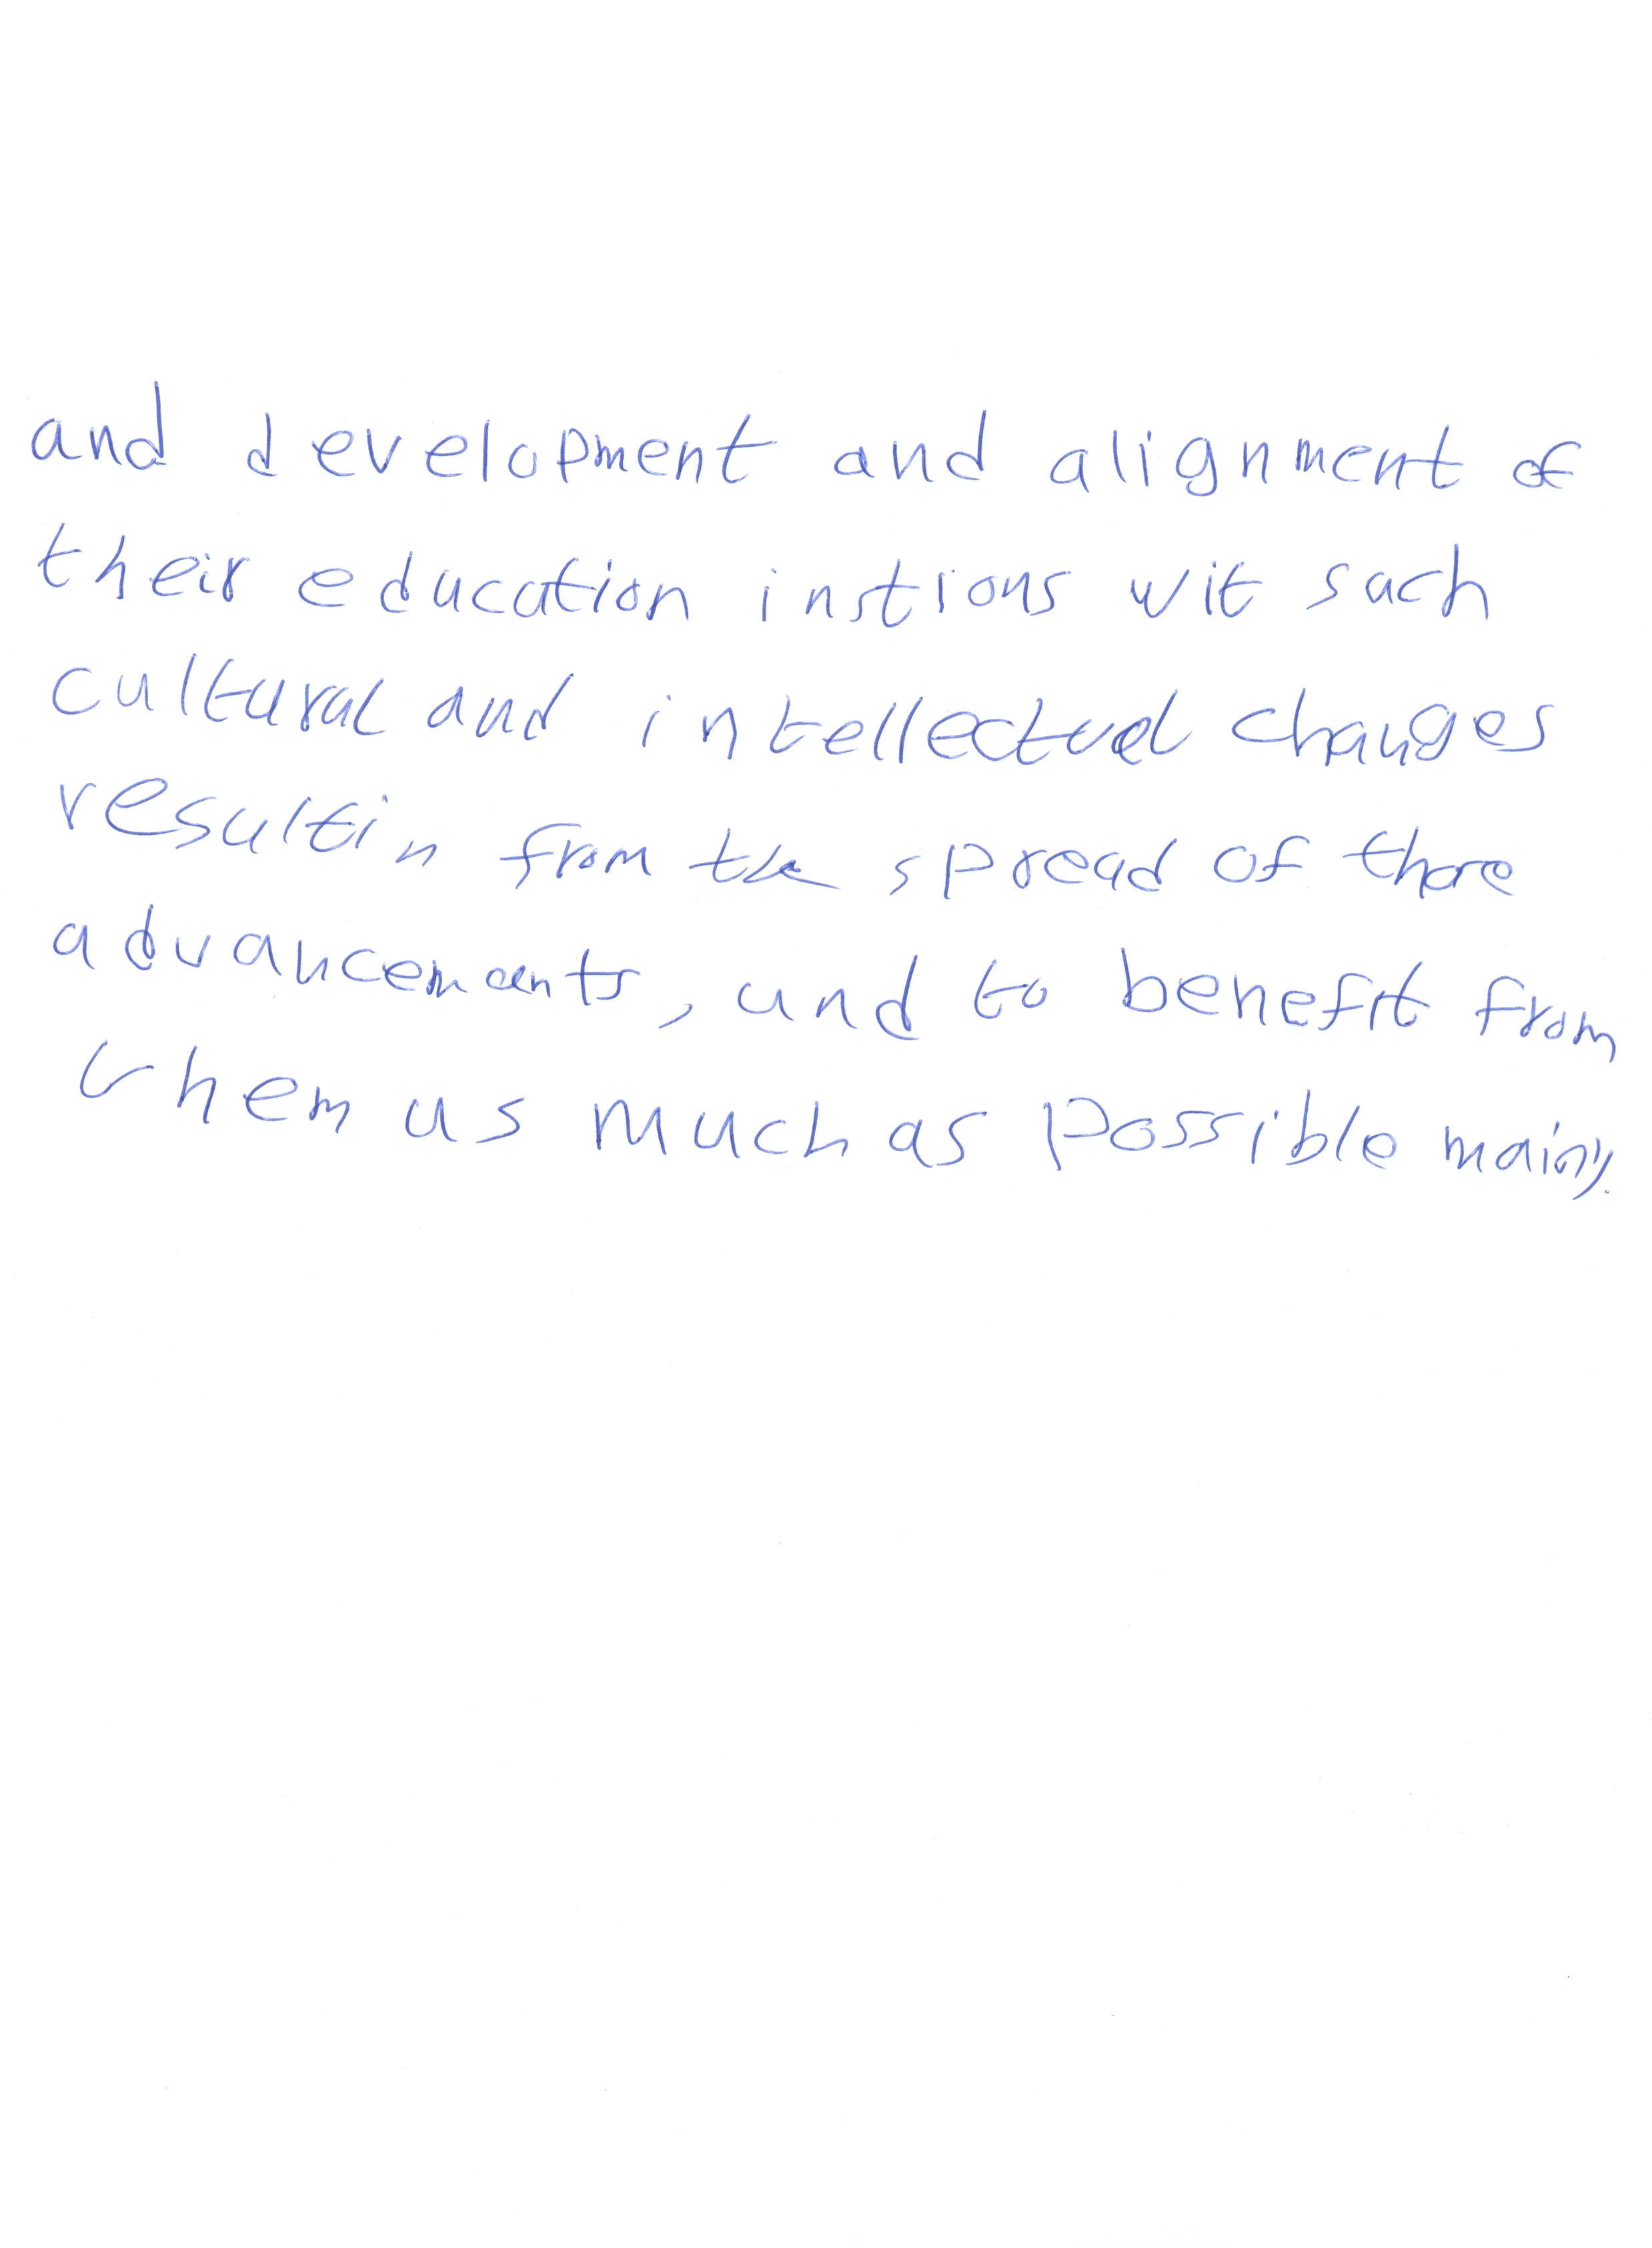 and development and alignment of
their education instions wit such
cultural and intellectual changes
resultin from the spread of there
advancements, and to benefit from
them as much as possible mainy.